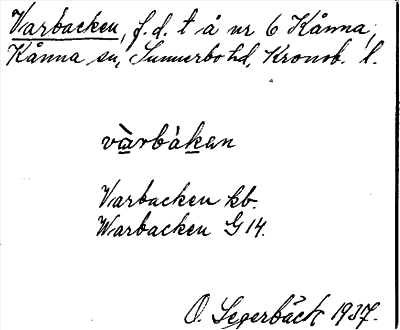 Varbacken, f.d. t å nr 6 Kånna,
Kånna sn, Sunnerbo hd, Kronob. l.
vàrbákan
Varbacken kb.
Warbacken G 14.
O. Segerbäck 1937.